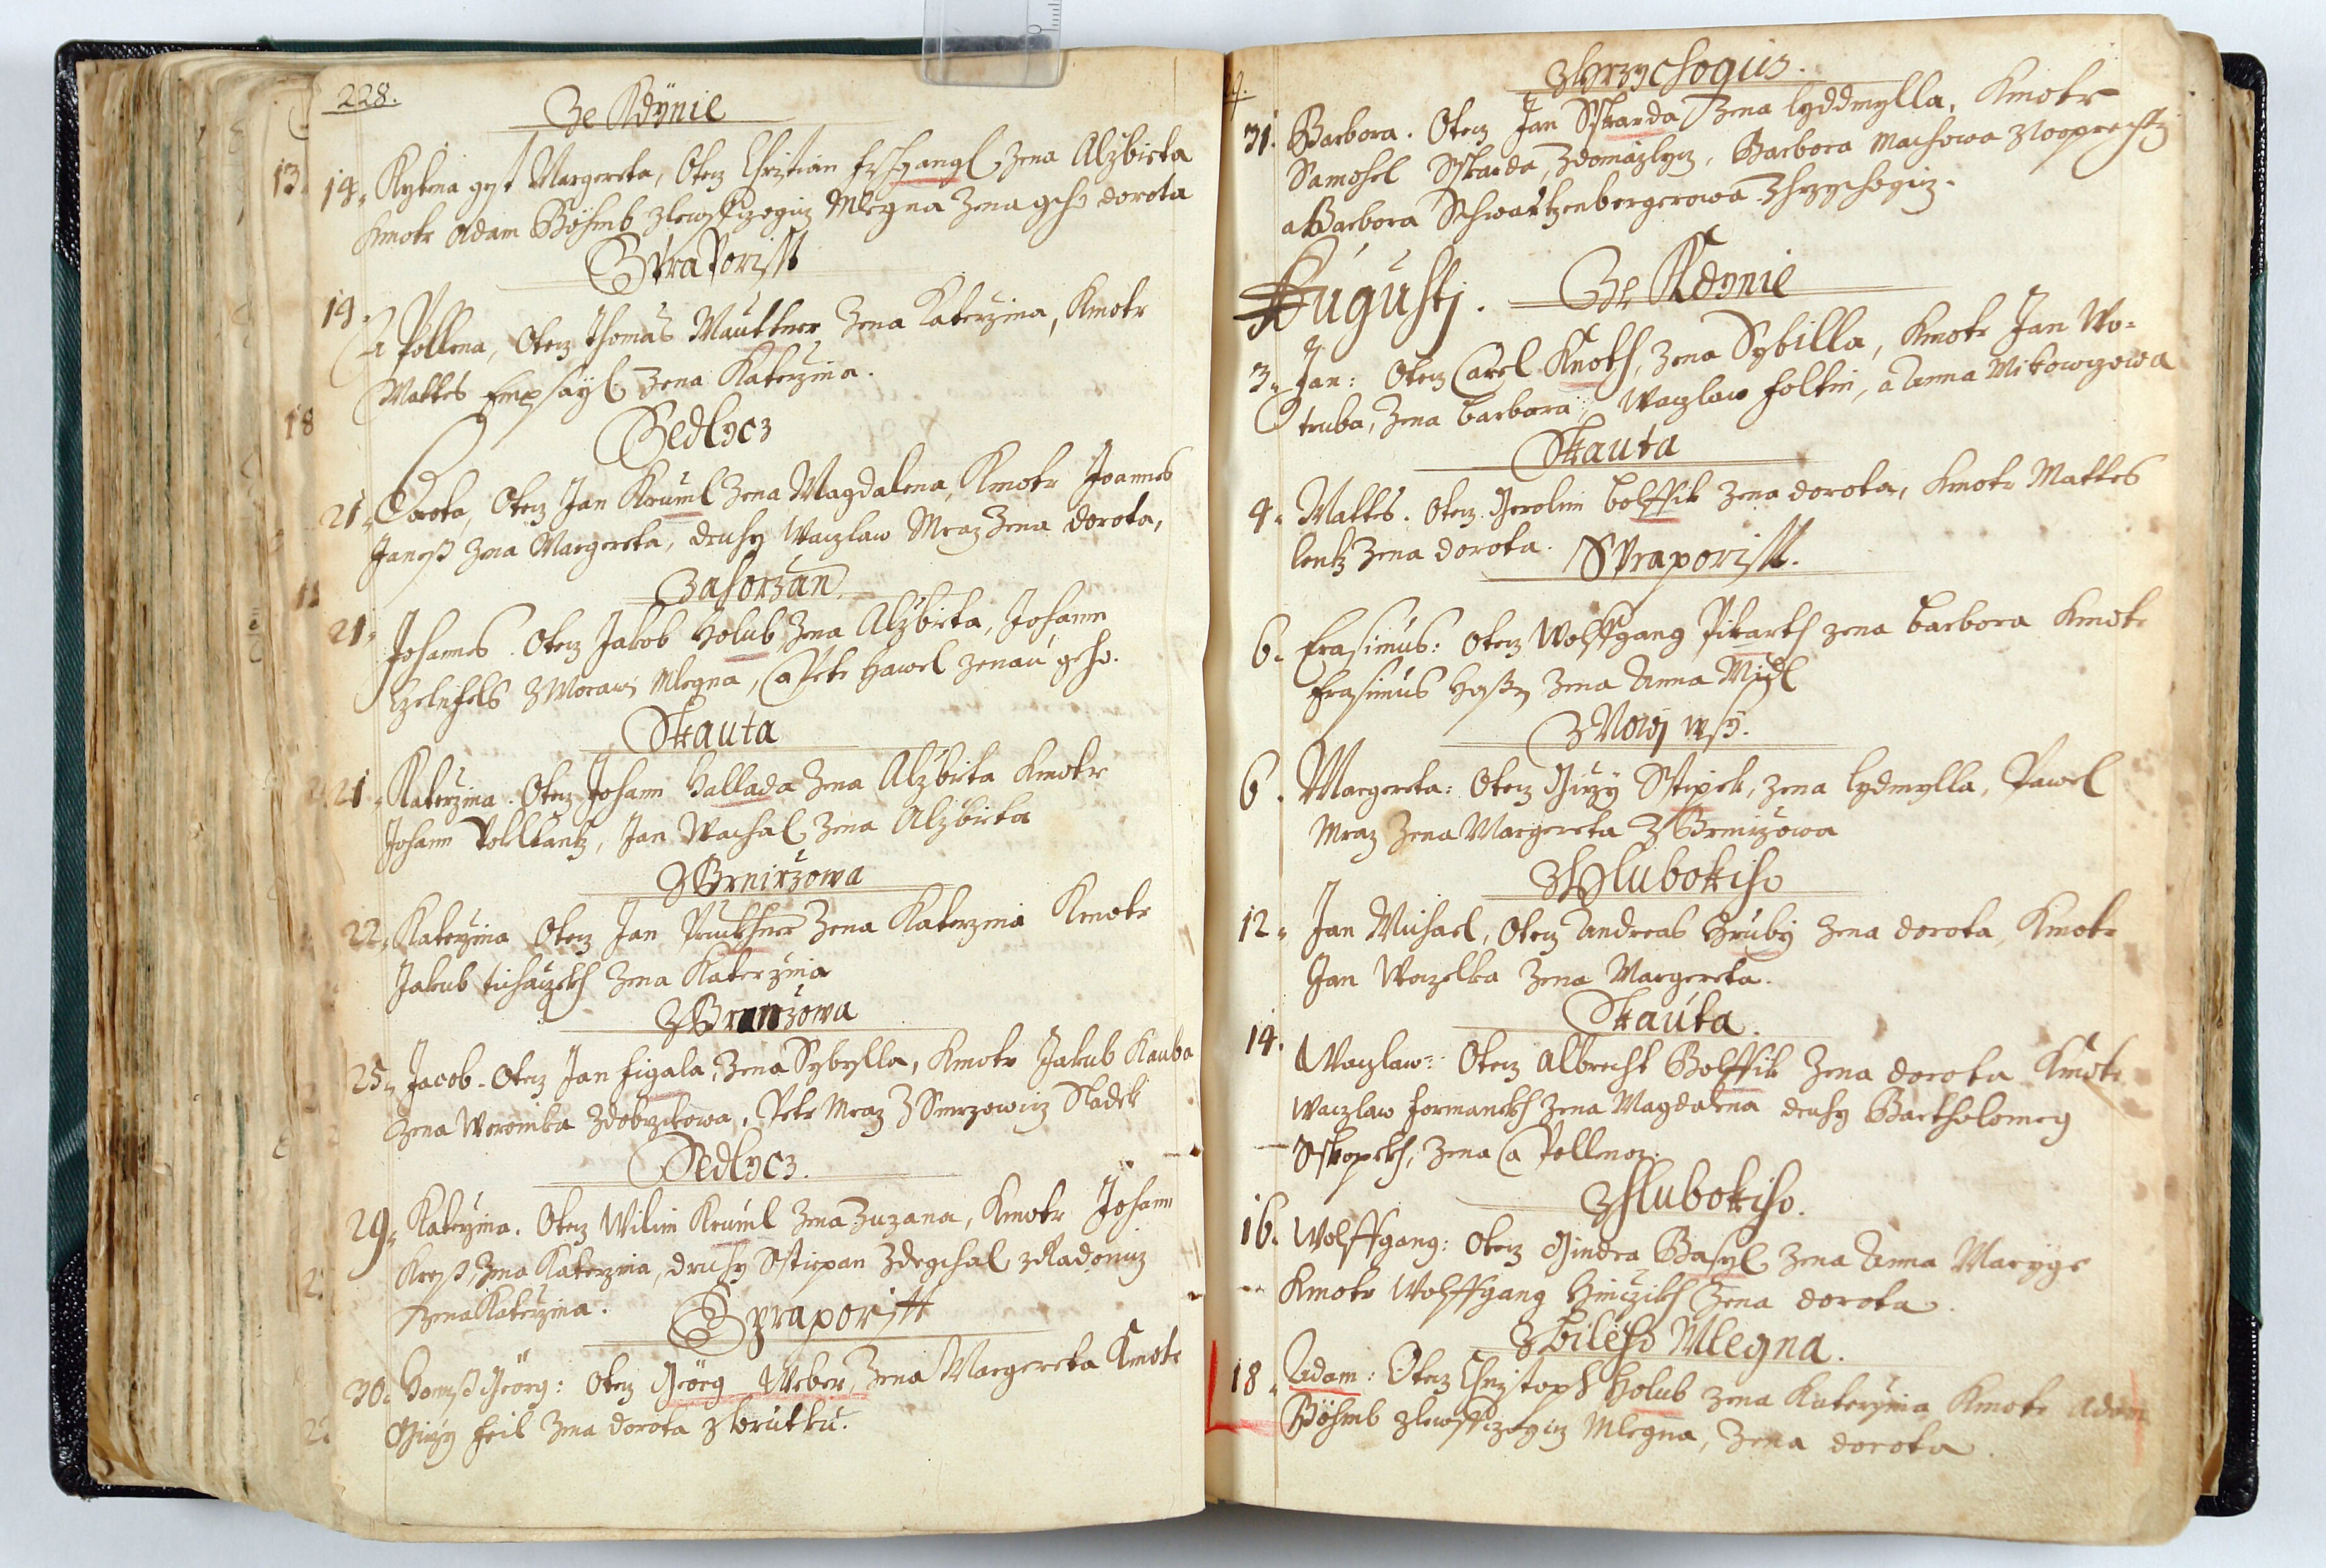 228.
Ze Kdynie
13. 14. Kytena gest Margereta, Otecz Christian Eysfangl, Zena Alzbieta
Kmotr Adam Böhmb zlewskizogicz Mlegna Zena geho dorota
Straporisst
19. Apollena, Otecz Thomas Mauttner Zena Katerzina, Kmotr
Mattes Zena Katerzina.
18
Sedlycz
21. Dorota, Otecz Jan Kruml Zena Magdalena, Kmotr Joannes
Janeß Zena Margereta, druhy Waczlaw Mraz Zena dorota,
Zahorzan
21. Johannes. Otecz Jakob Holub, Zena Alzbieta, Johann
z Morawi Mlegna, a Petr Hawel Zenau geho.
Skauta
21. Katerzina. Otecz Johann Hallada Zena Alzbieta Kmotr
Johann Jan Wachal Zena Alzbieta
Z Brnirzowa
22. Katerzina Otecz Jan Pruckhner Zena Katerzina Kmotr
Jakub tichaczekh Zena Katerzina
Z Brnirzowa
25. Jacob. Otecz Jan Figala, Zena Sybylla, Kmotr Jakub Kauba
Zena Weronika Zdobrzikowa, Petr Mraz Z Smrzowicz Sladek
Sedlycz.
29. Katerzina. Otecz Wilim Kruml Zena Zuzana, Kmotr Johann
Kreyß, Zena Katerzina, druhy Sstiepan Zdeychal z Radonicz
Zena Katerzina.
Z Straporisst
30. Hannß Georg: Otecz Georg Weber, Zena Margereta Kmotr
Girzy Feil Zena dorota z brutku.
Z Hrzychogicz.
31. Barbora. Otecz Jan Sskarda Zena lyddmylla, Kmotr
Samohel Sskarda, Zdomazlycz, Barbora Machowa
a Barbora Schwartzenbergerowa Z hrzychogicz.
Augustj. Ze Kdynie
3. Jan: Otecz Carel Knoth, Zena Sybilla, Kmotr Jan Wo-
truba, Zena barbora, Waczlaw Foltin, a Anna Mikowgowa
Skauta
4. Mattes. Otecz Gerolim bolffik Zena dorota, Kmotr Mattes
lentz Zena dorota.
Straporisst.
6. Erasimus: Otecz Wolffgang Pikarth Zena barbora Kmotr
Erasimus Zena Anna Midl
Z Nowy wsy.
6. Margereta: Otecz Girzy Sstipek, Zena lydmylla, Pawel
Mraz Zena Margereta Z Brnirzowa
Z Hlubokiho
12. Jan Michael, Otecz Andreas Hruby Zena dorota, Kmotr
Jan Woczelka Zena Margereta.
Skauta.
14. Waczlaw: Otecz Albrecht Bolffik Zena dorota Kmotr
Waczlaw Formanekh Zena Magdalena druhy Bartholomeg
Sskopekh, Zena Apollenoz.
Z Hlubokiho.
16. Wolffgang: Otecz Gindra Basyl Zena Anna Maryge
Kmotr Wolffgang Hinczikh Zena dorota.
Z bileho Mlegna.
18. Adam: Otecz Christoph Holub Zena Katerzina Kmotr Adam
Böhmb zlewskizogicz Mlegna, Zena dorota.